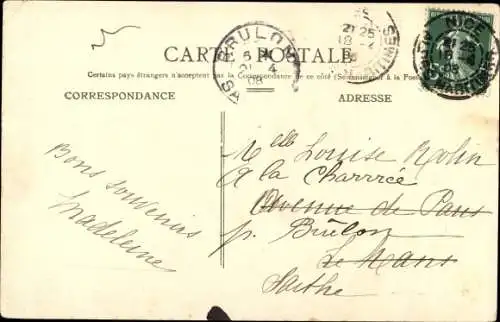 CARTE POSTALE
Certains pays étrangers n'acceptent pas la Correspondance de ce côté (Se renseigner à la Poste)
CORRESPONDANCE
ADRESSE
BRULON
21 4
08
21 25
18 -4
MARITIMES
NICE
21 25
MARITIMES
Bons souvenirs
Madeleine
Melle Louise Rolin
a la Charrrée
Avenue de Paris
p. Brûlon
Le Mans
Sarthe